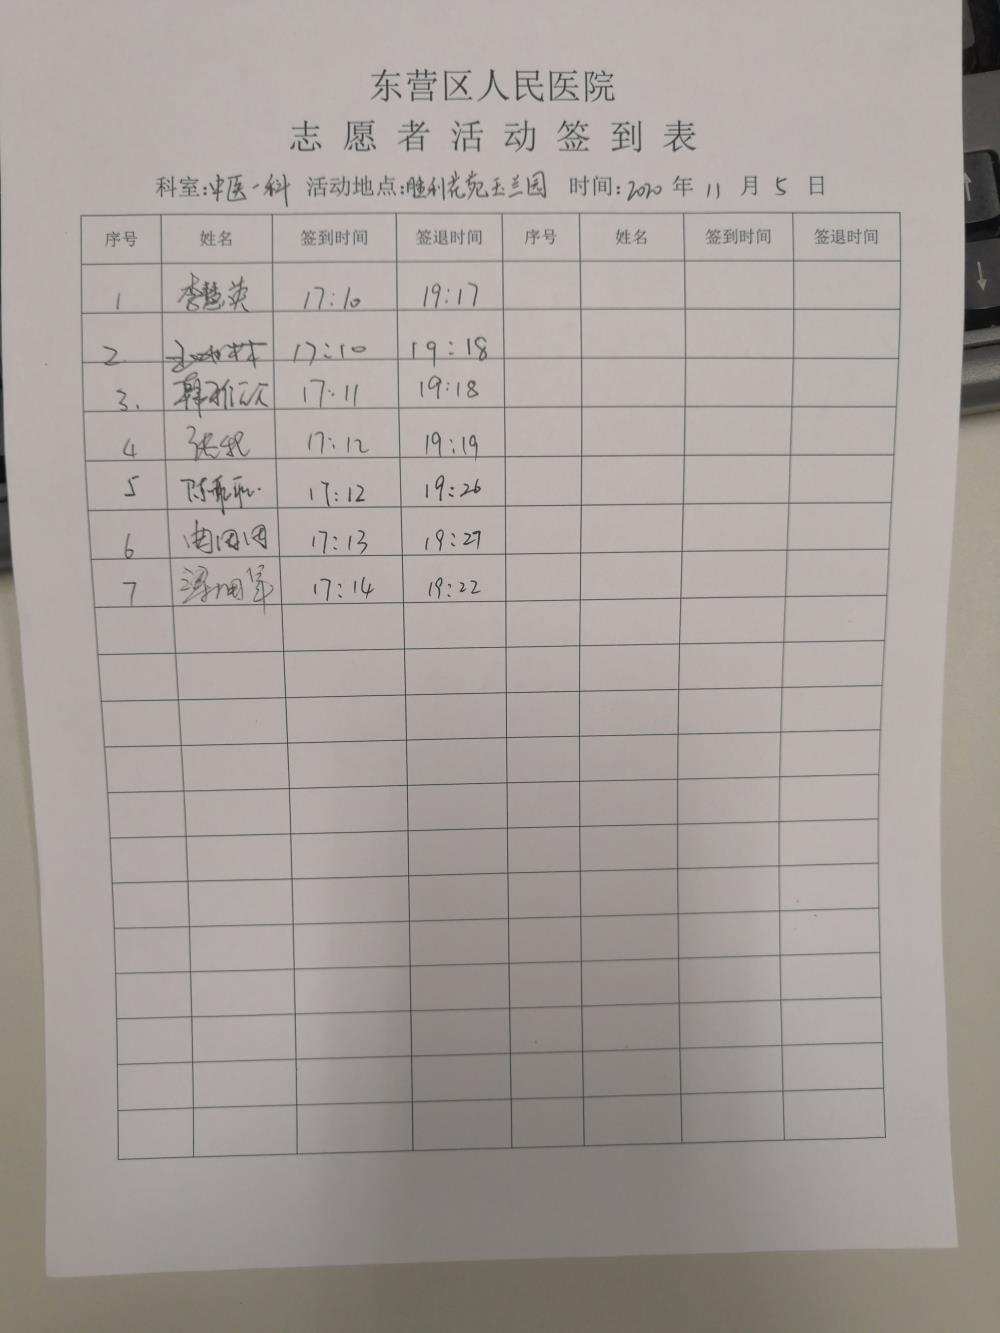 东营区人民医院
志愿者活动签到表
科室:中医一科 活动地点:胜利花苑玉兰园 时间:2020年11月5日
序号 姓名 签到时间 签退时间 序号 姓名 签到时间 签退时间
1 李慧英 17:10 19:17
2. 17:10 19:18
3. 17:11 19:18
4 17:12 19:19
5 17:12 19:26
6 曲团团 17:13 19:27
7 17:14 19:22